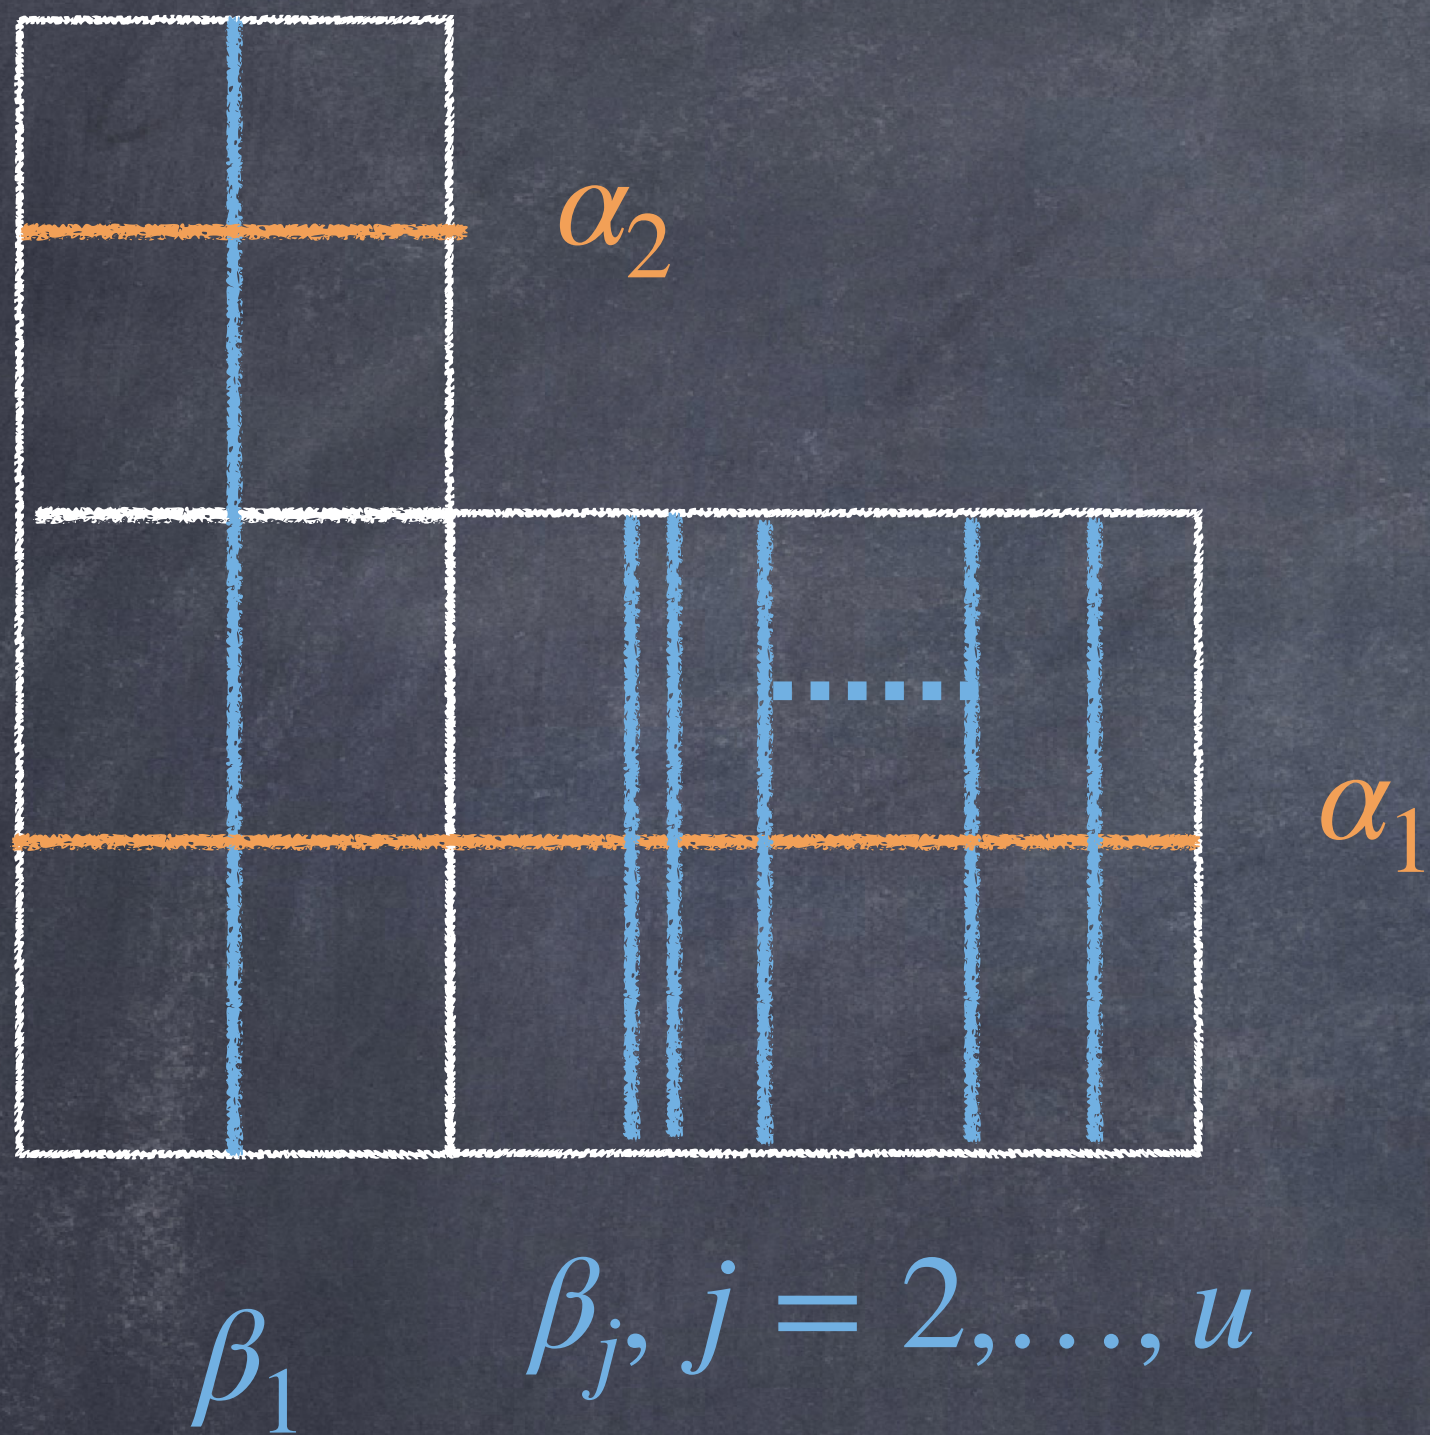 α₂
α₁
β₁
βⱼ, j = 2,…, u